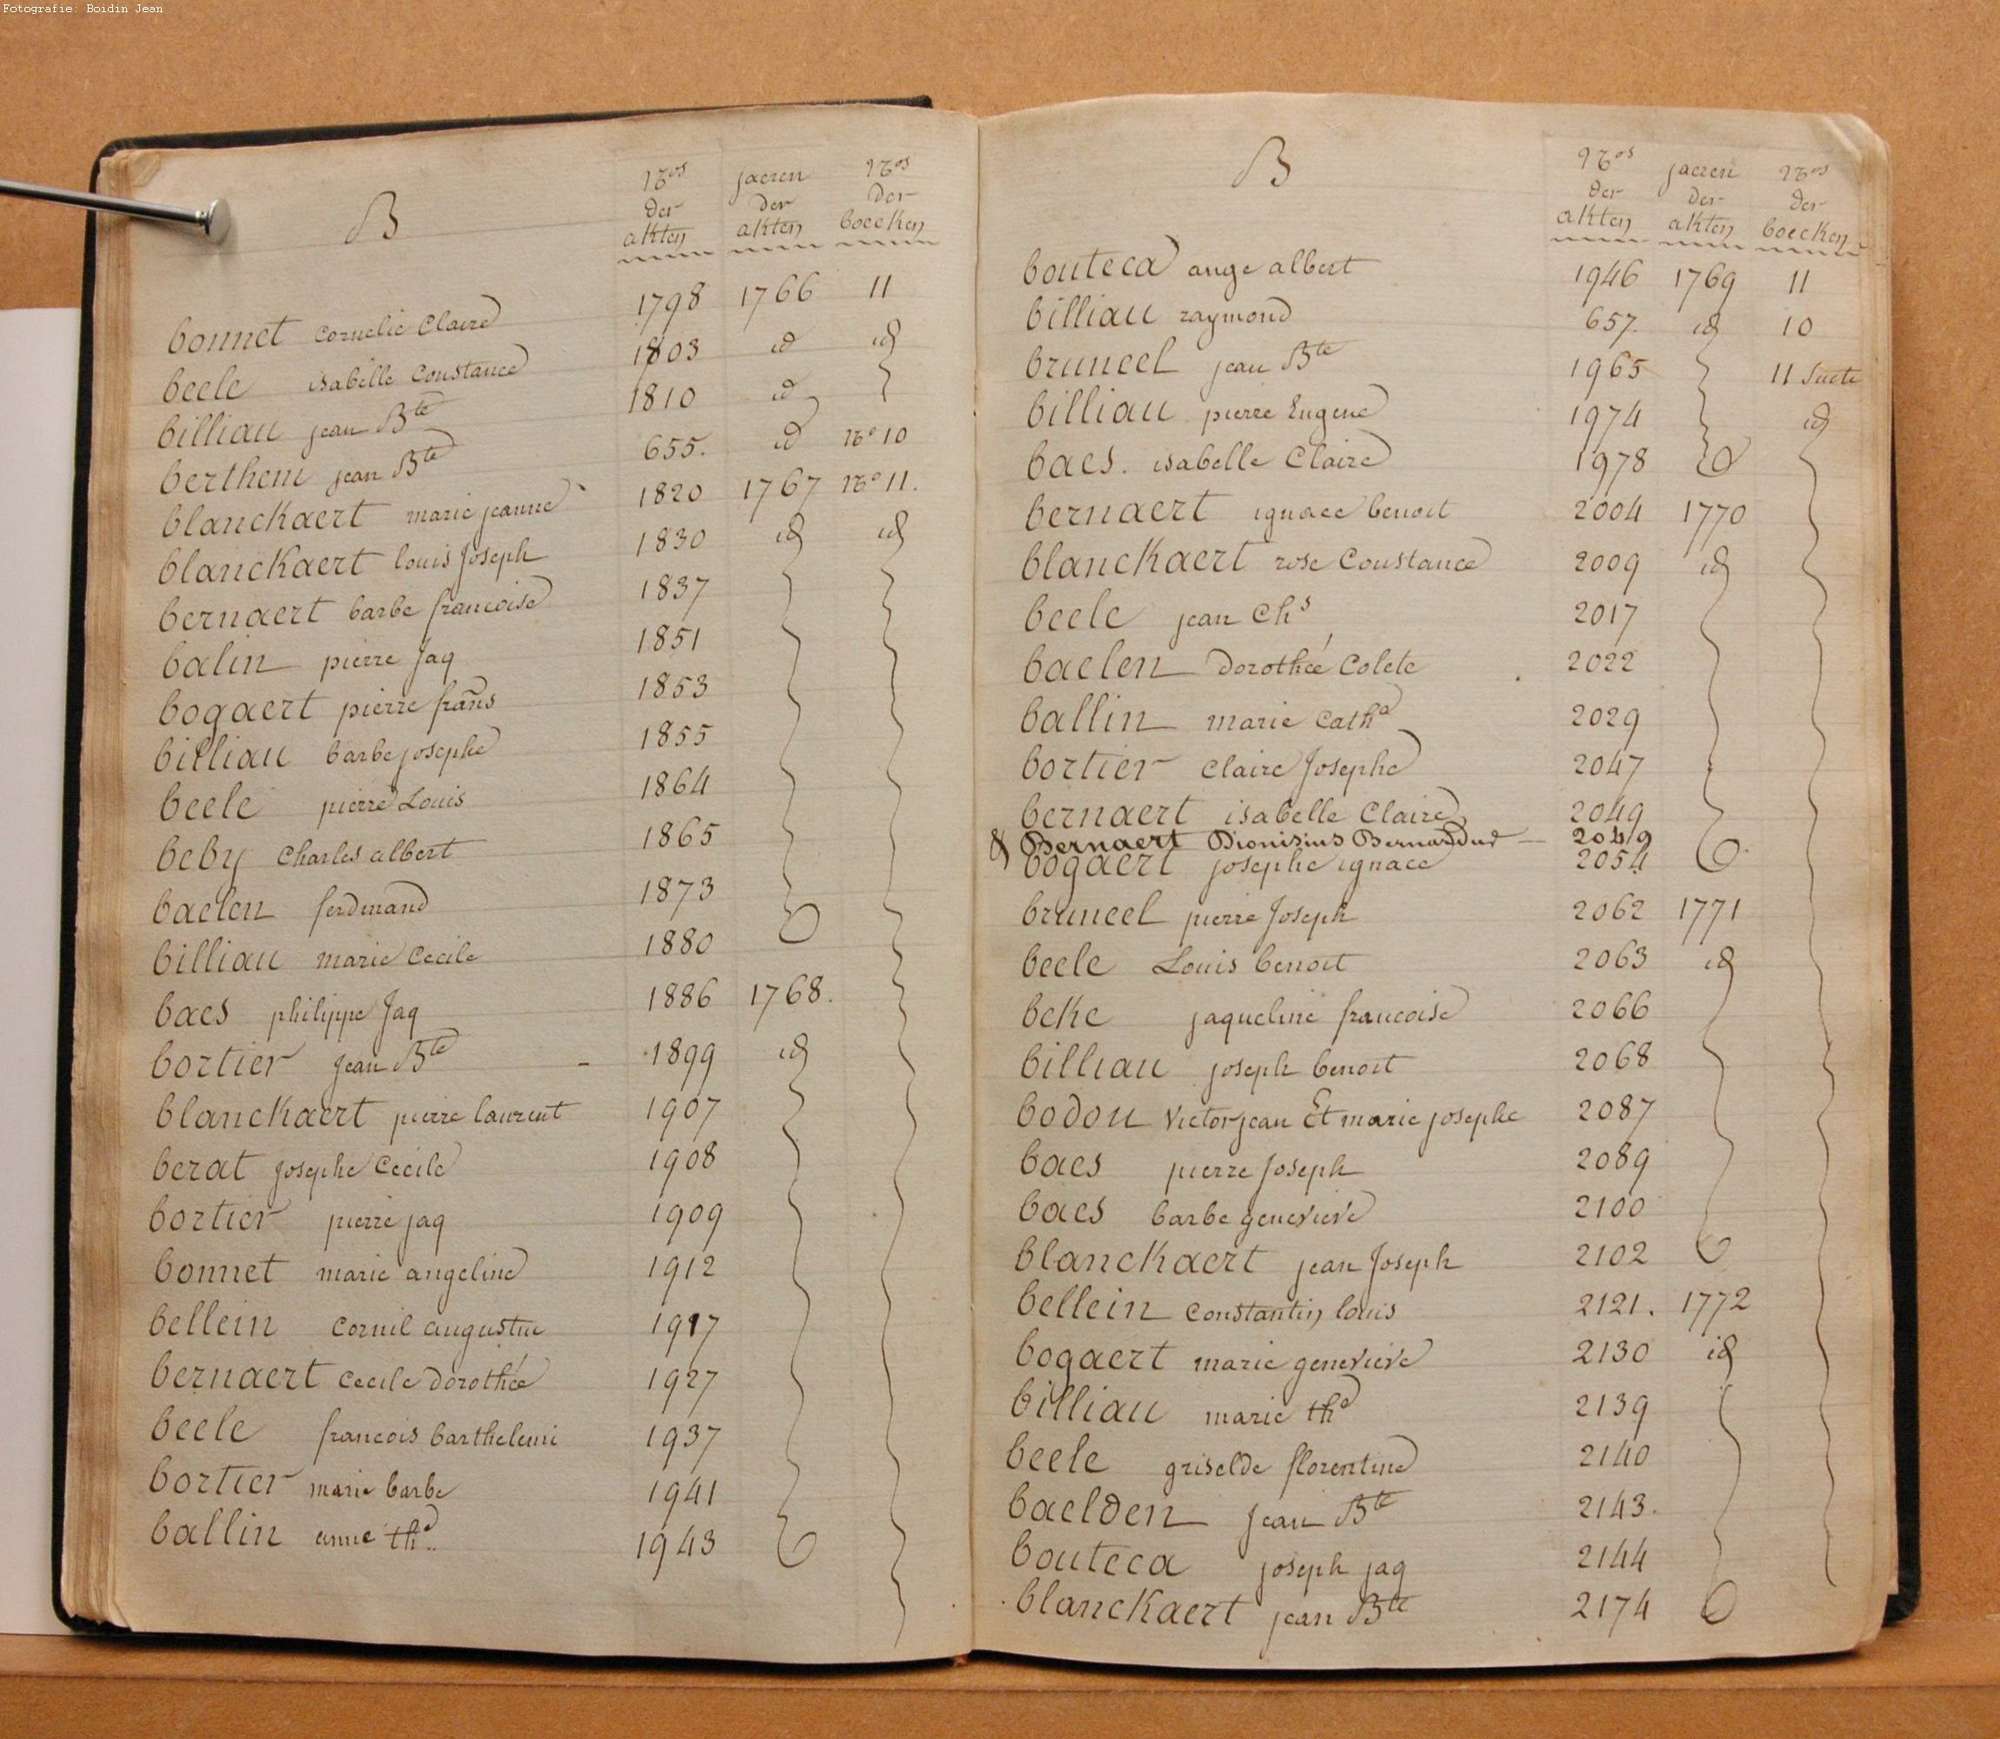 Fotografie: Boidin Jean
B
Nos der akten
jaeren der akten
Nos der boecken
bonnet cornelie Claire 1798 1766 11
beele isabelle Constance 1803 id id
billiau jean Bte 1810 id
berthem jean Bte 655. id No 10
blanckaert marie jeanne 1820 1767 No 11.
blanckaert louis Joseph 1830 id id
bernaert barbe francoise 1837
balin pierre Jaq 1851
bogaert pierre frans 1853
billiau barbe josephe 1855
beele pierre Louis 1864
beby Charles albert 1865
baelen ferdinand 1873
billiau marie Cecile 1880
baes philippe Jaq 1886 1768.
bortier Jean Bte - 1899 id
blanckaert pierre laurent 1907
berat Josephe Cecile 1908
bortier pierre jaq 1909
bonnet marie angeline 1912
bellein cornil augustin 1917
bernaert Cecile Dorothée 1927
beele francois barthelemi 1937
bortier marie barbe 1941
ballin anne the 1943
B
Nos der akten
jaeren der akten
Nos der boecken
bouteca ange albert 1946 1769 11
billiau raymond 657. id 10
bruneel jean Bte 1965 11 Suite
billiau pierre Eugene 1974 id
baes. isabelle Claire 1978
bernaert ignace benoit 2004 1770
blanckaert rose Constance 2009 id
beele jean Chs 2017
baelen Dorothée Colete 2022
ballin marie Cathe 2029
bortier Claire Josephe 2047
bernaert isabelle Claire 2049
& Bernaert Dionisius Bernardus — 2049
bogaert josephe ignace 2054
bruneel pierre Joseph 2062 1771
beele Louis benoit 2063 id
beke jaqueline francoise 2066
billiau joseph benoit 2068
bodou Victor jean Et marie josephe 2087
baes pierre Joseph 2089
baes barbe genevieve 2100
blanckaert jean Joseph 2102
bellein Constantin louis 2121. 1772
bogaert marie genevieve 2130 id
billiau marie the 2139
beele griselde florentine 2140
baelden Jean Bte 2143.
bouteca joseph jaq 2144
blanckaert jean Bte 2174